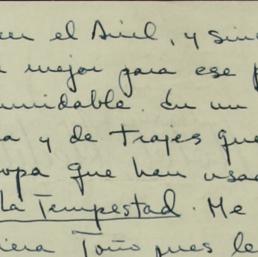 en el Ariel, y sin
mejor para ese
unidable. En un
a y de trajes que
opa que han usa
La Tempestad. Me
iera Toño pues le